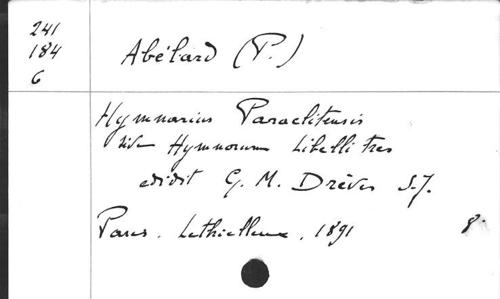 241
184
6
Abélard (P.)
Hymnarius Paraclitensis
sive Hymnorum Libelli tres
edidit G. M. Drèves S.J.
Paris. Lethielleux, 1891 8°